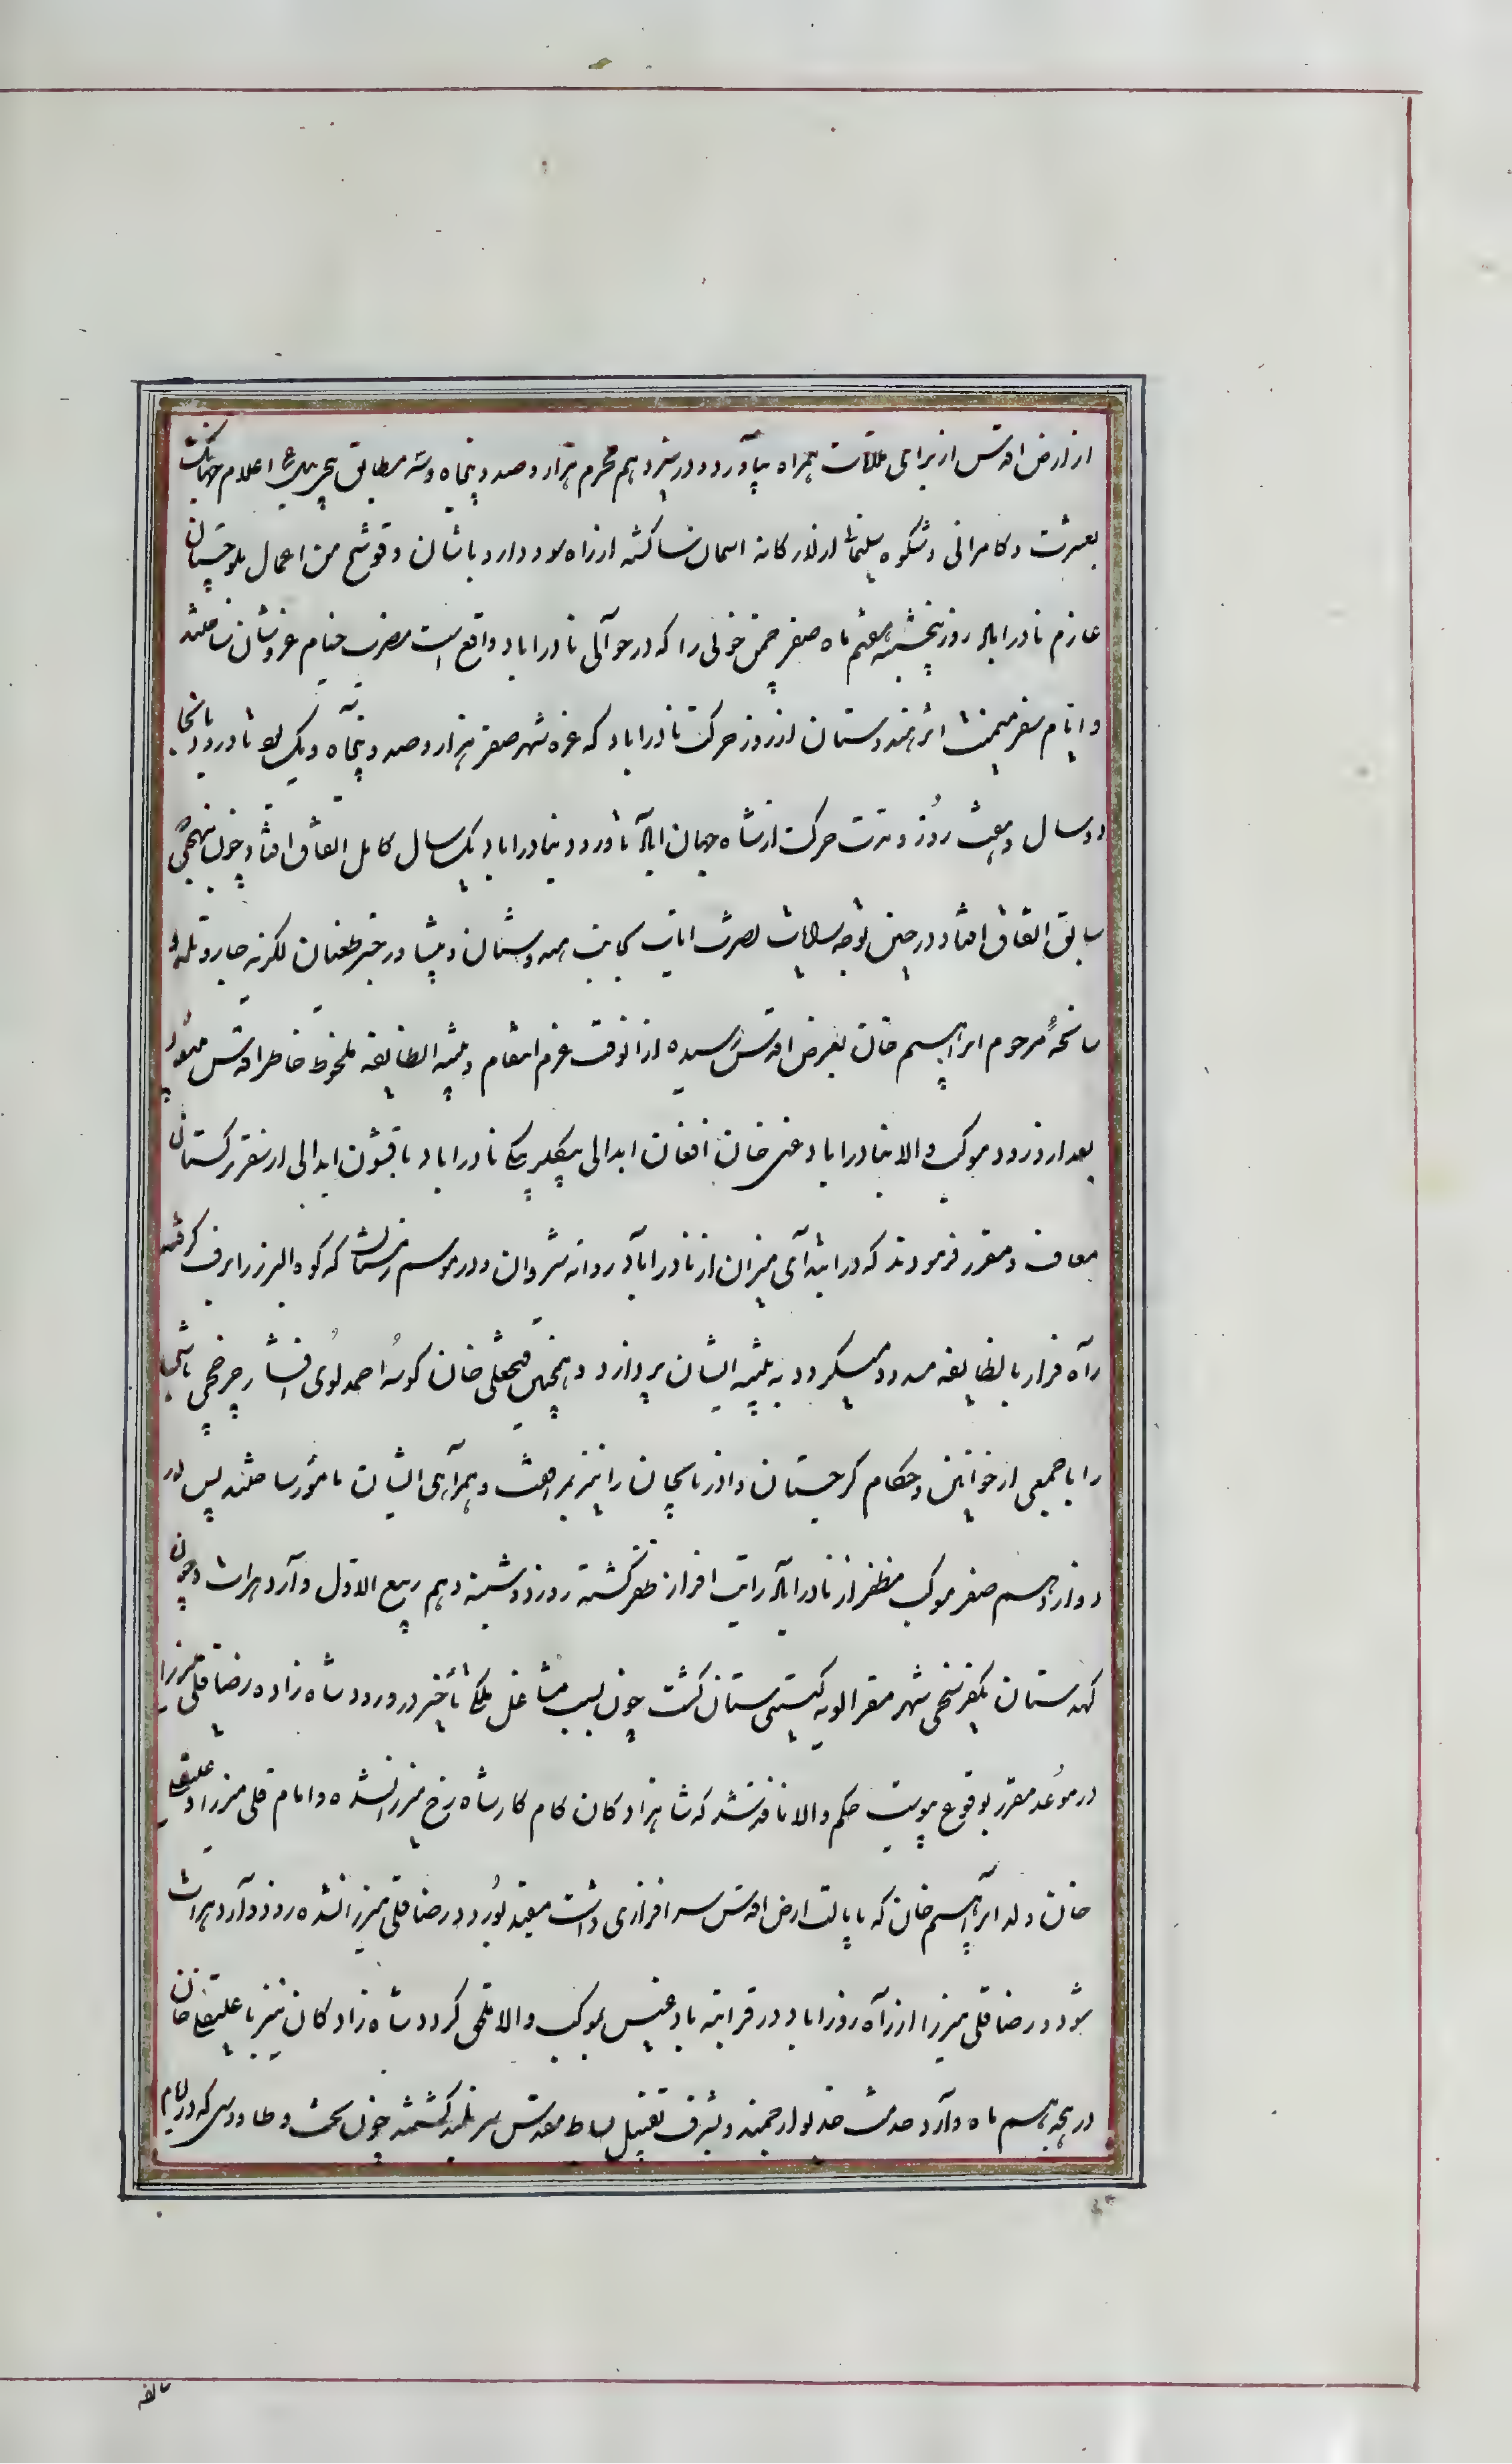 از ارض اقدس از برای ملاقات همراه بیاورد و در سیزدهم محرم هزار و صد و پنجاه و سه مطابق پیچی ئیل اعلام جهانگشا
بعشرت و کامرانی و شکوه سلیمانی از لارکانه اسمان سا کشته از راه سود دارد باشان و قوشنج من اعمال بلوچستان
عازم نادراباد روز پنجشنبه هفتم ماه صفر چمن خونی را که در حوالی نادراباد واقع است مضرب خیام عز و شان ساختند
و ایام سفر میمنت اثر هندوستان از روز حرکت نادراباد که غره شهر صفر هزار و صد و پنجاه و یک بود تا ورود بانجا
دو سال و هفت روز و مدت حرکت از شاه جهان اباد تا ورود بنادراباد یک سال کامل اتفاق افتاد چون بنهجی که
سابق اتفاق افتاد در حین توجه رایات نصرت ایات بجانب هندوستان و پیشاور خبر طغیان لکزیه جار و تله و
سانحهٔ مرحوم ابراهیم خان بعرض اقدس رسیده از انوقت عزم انتقام و تنبیه الطایفه ملحوظ خاطر اقدس میبود
بعد از ورود موکب والا بنادراباد غنی خان افغان ابدالی بیکلربیکی نادراباد با قشون ابدالی از سفر ترکستان
معاف و مقرر فرمودند که در ابتدای میزان از نادراباد روانه شروان و در موسم زمستان که کوه البرز را برف گرفته
راه فرار بالطایفه مسدود میکردد به تنبیه ایشان پردازد و همچنین فتحعلی خان کوسهٔ احمدلوی افشار چرخچی باشی
را با جمعی از خوانین و حکام کرجستان و اذربایجان را نیز بمرافقت و همراهی ایشان مامور ساختند پس در
دوازدهم صفر موکب مظفر از نادراباد رایت افراز ظفر کشته روز دوشنبه دهم ربیع الاول وارد هرات و چون
کهدستان یکفرسخی شهر مقر الویه کیتی ستان کشت چون بسبب مشاغل ملکی تأخیر در ورود شاه زاده رضا قلی میرزا
در موعد مقرر بوقوع پیوست حکم والا نافذ شد که شاهزادکان کامکار شاهرخ میرزا نشده و امام قلی میرزا و علیقلی
خان ولد ابراهیم خان که بایالت ارض اقدس سرافرازی داشت مقید بورود رضا قلی میرزا نشده روز وارد هرات
شود و رضا قلی میرزا از راه روزاباد در قراتپه بادغیس بموکب والا ملحق کردد شاه زادکان نیز با علیقلی خان
در هیجدهم ماه وارد خدمت خدیو ارجمند و بشرف تقبیل بساط مقدس سر بلند کشتند چون تخت طاوس که در ایام
سالفه